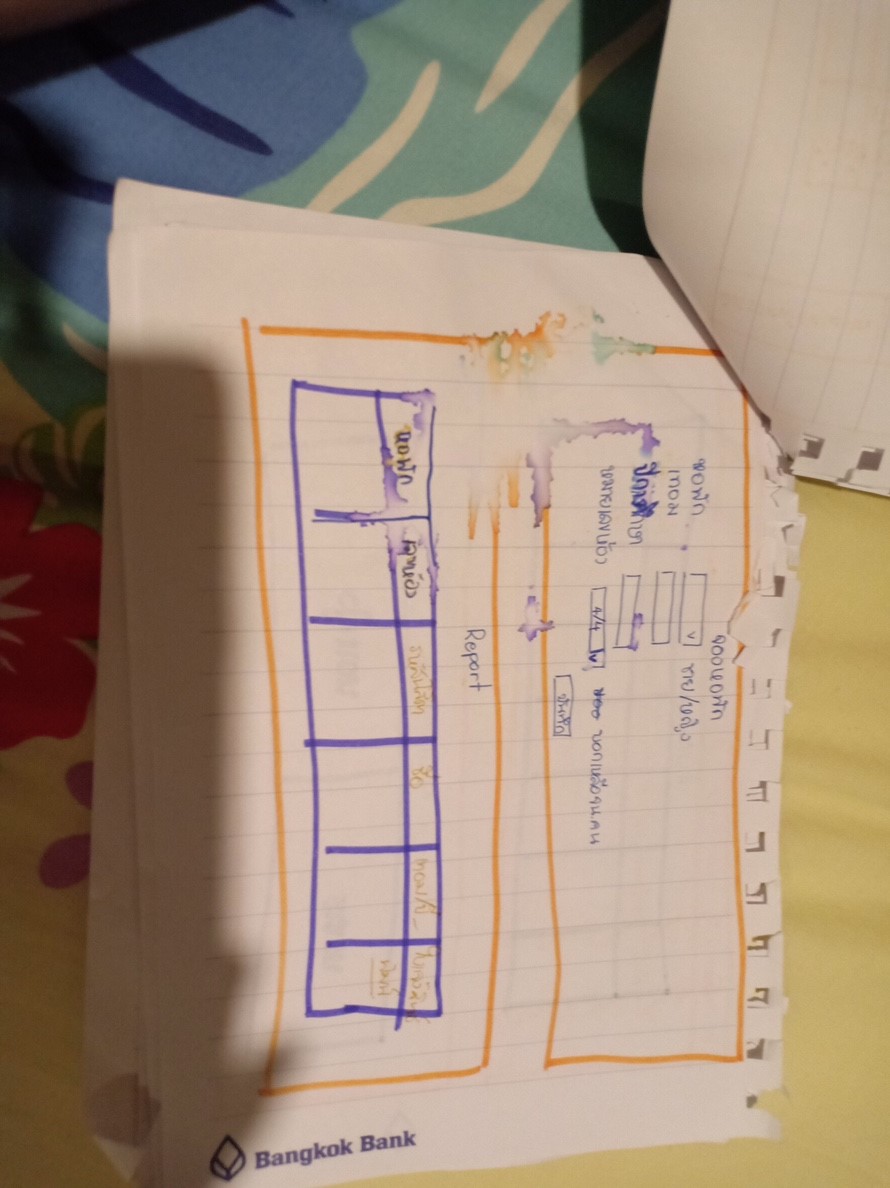 จองหอพัก
หอพัก ชาย/หญิง
เทอม
ปีการศึกษา
หมายเลขห้อง 4/4 บอกเหลือจน.คน
บันทึก
Report
หอพัก เลขห้อง รหัสนิสิต ชื่อ เทอม/ปี
พิมพ์
Bangkok Bank